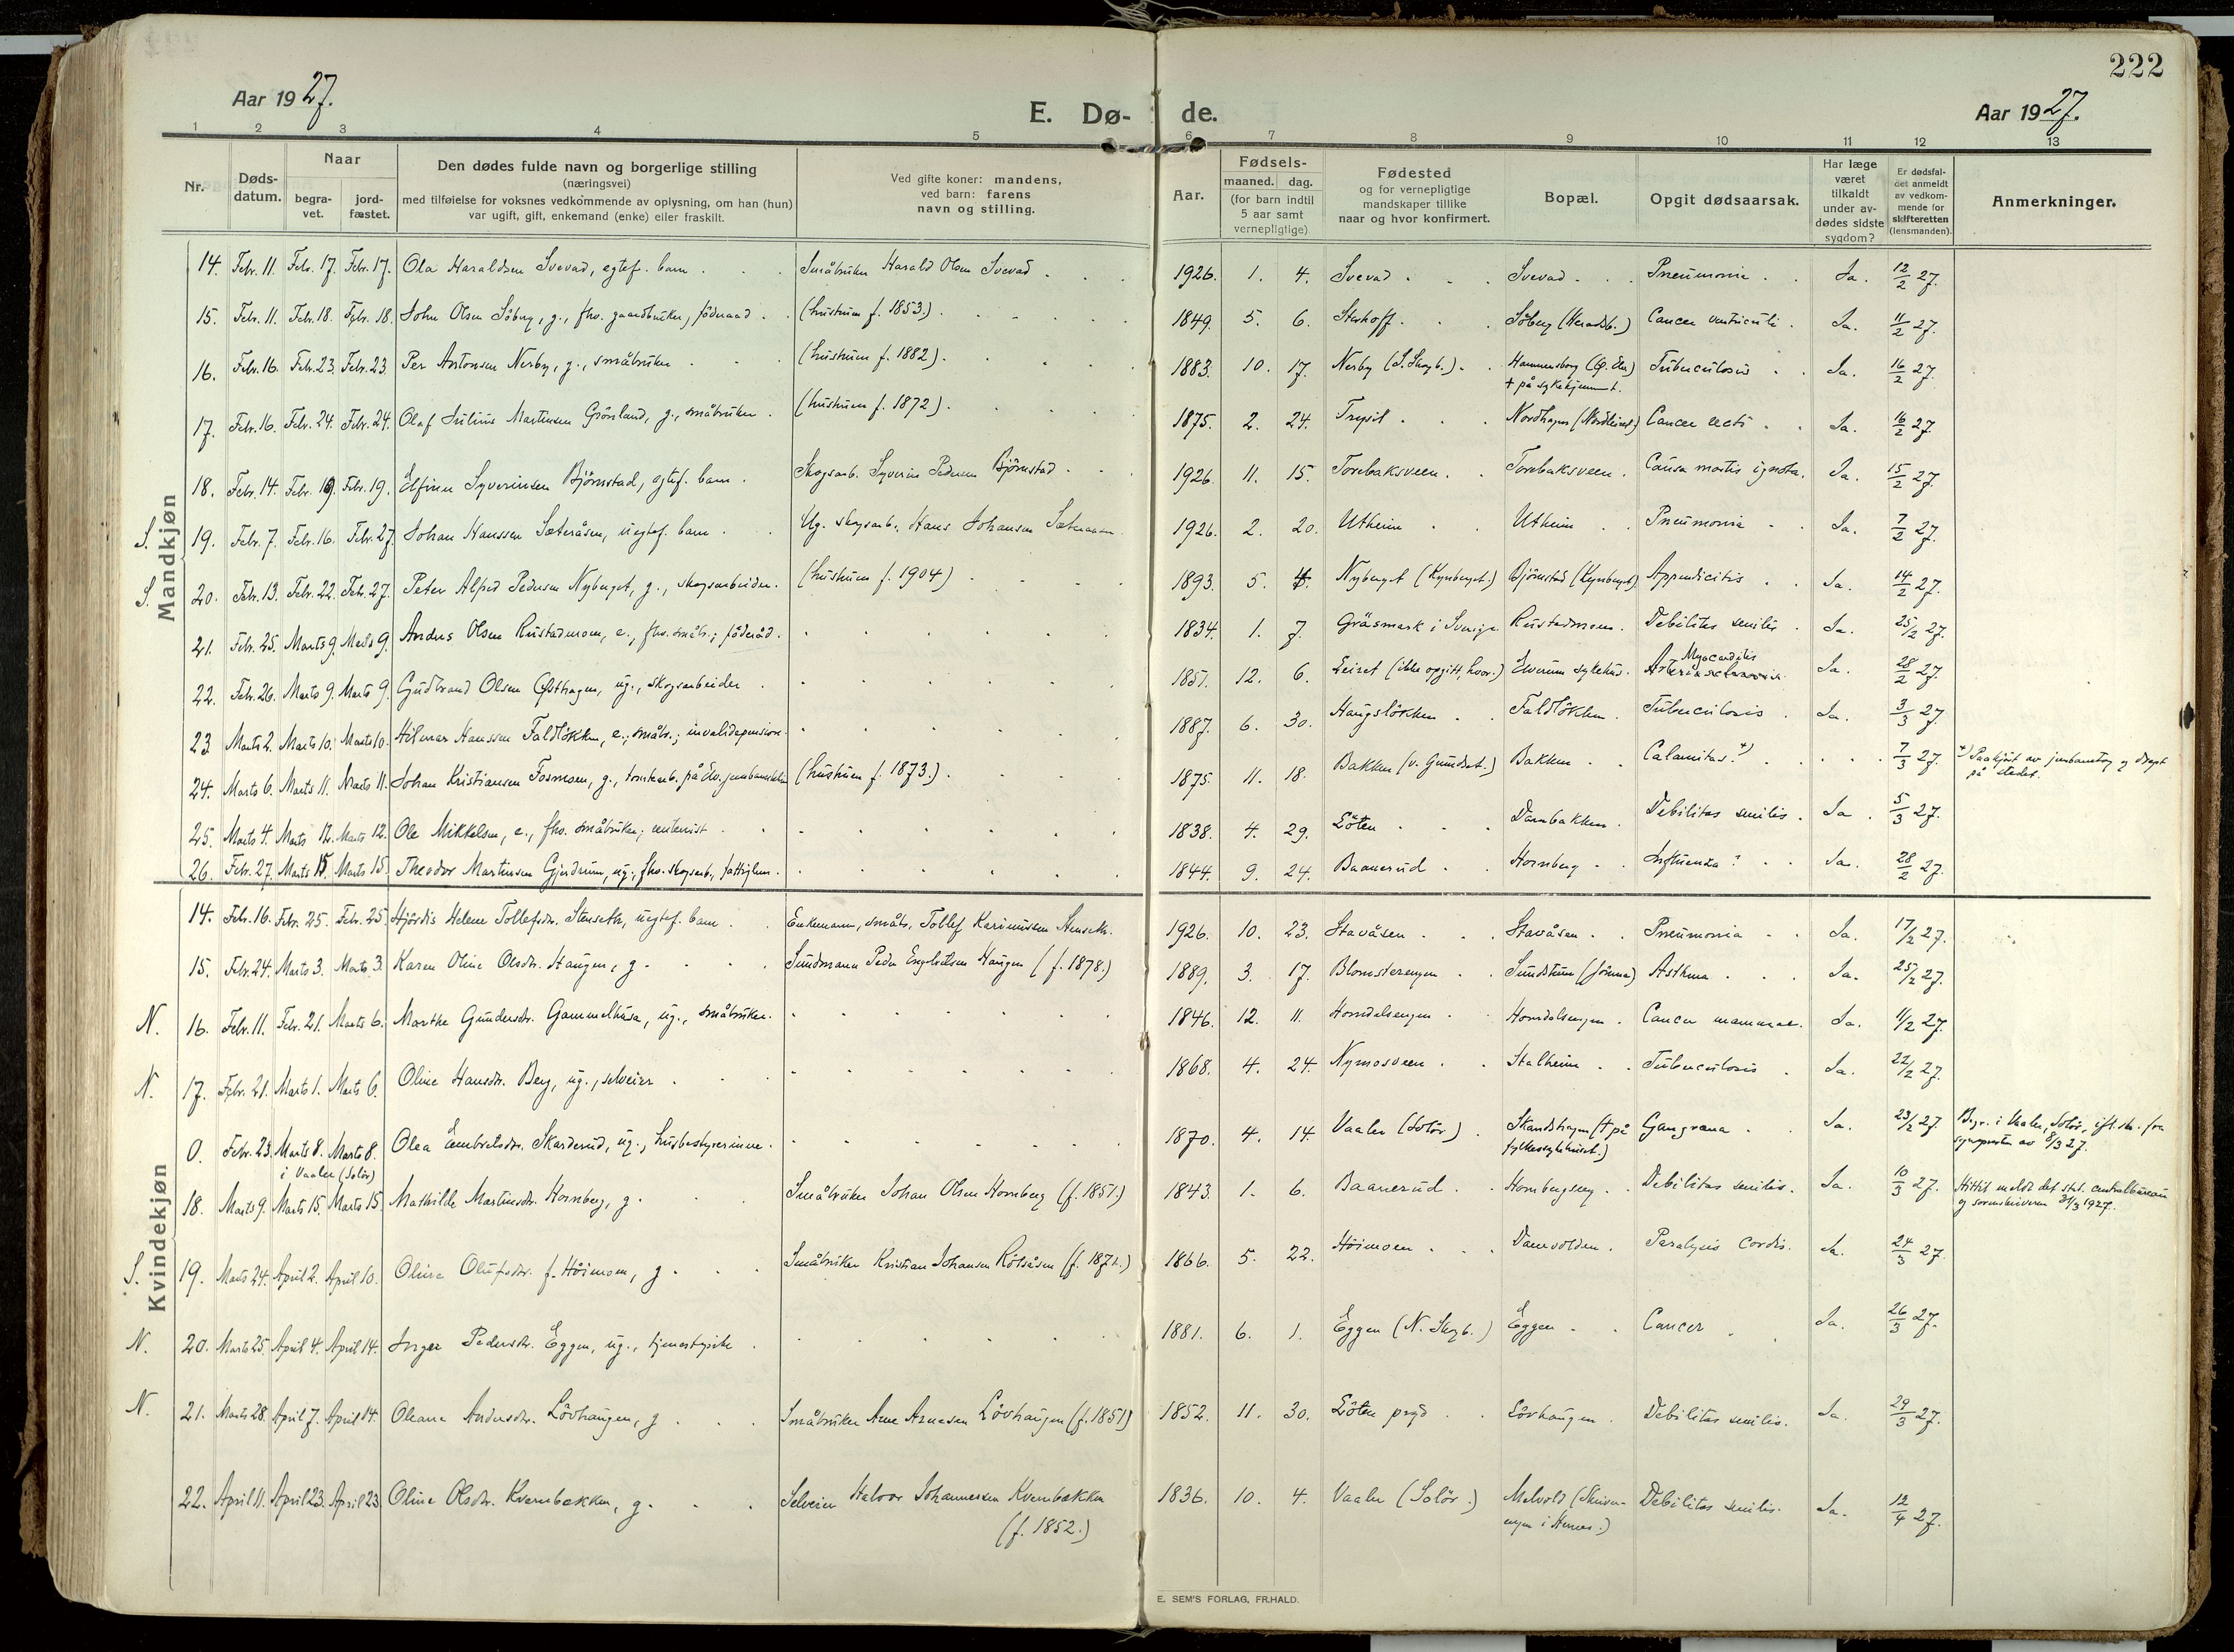 222
Aar 1927.
E. Dø-
de.
Aar 1927.
1 2 3 4 5 6 7 8 9 10 11 12 13
Nr.
Døds-
datum.
Naar
begra-
vet.
jord-
fæstet.
Den dødes fulde navn og borgerlige stilling
(næringsvei)
med tilføielse for voksnes vedkommende av oplysning, om han (hun)
var ugift, gift, enkemand (enke) eller fraskilt.
Ved gifte koner: mandens,
ved barn: farens
navn og stilling.
Aar.
Fødsels-
maaned. dag.
(for barn indtil
5 aar samt
vernepligtige)
Fødested
og for vernepligtige
mandskaper tillike
naar og hvor konfirmert.
Bopæl.
Opgit dødsaarsak.
Har læge
været
tilkaldt
under av-
dødes sidste
sygdom?
Er dødsfal-
det anmeldt
av vedkom-
mende for
skifteretten
(lensmanden).
Anmerkninger.
Mandkjøn
14. Febr. 11. Febr. 17. Febr. 17. Ola Haraldsen Svevad, egtef. barn Småbruker Harald Olsen Svevad 1926. 1. 4. Svevad Svevad Pneumonia Ja. 12/2 27.
15. Febr. 11. Febr. 18. Febr. 18. John Olsen Söberg, g., fhv. gaardbruker, föderaad (hustruen f. 1853.) 1849. 5. 6. Söberg Cancer ventriculi Ja. 11/2 27.
16. Febr. 16. Febr. 23. Febr. 23. Per Antonsen Nerby, g., småbruker (hustruen f. 1882). 1883. 10. 17. Nerby (S. Skogb.) Tuberculosis Ja. 16/2 27.
† på sykehjemmet.
17. Febr. 16. Febr. 24. Febr. 24. Olaf Julius Martinsen Grönland, g., småbruker (hustruen f. 1872). 1875. 2. 24. Trysil Cancer recti Ja. 16/2 27.
18. Febr. 14. Febr. 19. Febr. 19. Elfinn Syverinsen Björnstad, egtef. barn Skogsarb. Syverin Pedersen Björnstad 1926. 11. 15. Torebaksveen. Torebaksveen. Causa mortis ignota. Ja. 15/2 27.
S. 19. Febr. 7. Febr. 16. Febr. 27. Johan Hanssen Sæteråsen, uegtef. barn Ug. skogsarb. Hans Johansen Sæteraasen 1926. 2. 20. Utheim Utheim Pneumonia Ja. 7/2 27.
S. 20. Febr. 13. Febr. 22. Febr. 27. Peter Alfred Pedersen Nyberget, g., skogsarbeider. (hustruen f. 1904) 1893. 5. Nyberget (Kynberget.) Björnstad (Kynberget) Appendicitis Ja. 14/2 27.
21. Febr. 25. Marts 9. Marts 9. Anders Olsen Rustadmoen, e., fhv. småbr.; föderåd. 1834. 1. 7. Gräsmark i Sverige Rustadmoen. Debilitas senilis Ja. 25/2 27.
22. Febr. 26. Marts 9. Marts 9. Gudbrand Olsen Østhagen, ug., skogsarbeider 1851. 12. 6. Leiret (ikke opgitt, hvor.) Elverum sykehus. Myocarditis Ja. 28/2 27.
23 Marts 2. Marts 10. Marts 10. Hilmar Hanssen Faldlökken, e.; småbr.; invalidepension. 1887. 6. 30. Haugslökken Faldlökken Tuberculosis Ja. 3/3 27.
24. Marts 6. Marts 11. Marts 11. Johan Kristiansen Fosmoen, g., (hustruen f. 1873.) 1875. 11. 18. Bakken (v. Grundset.) Bakken Calamitas. *) 7/3 27. *) Paakjört av jernbanetog og drept
på stedet.
25. Marts 4. Marts 12. Marts 12. Ole Mikkelsen, e., fhv. småbruker; rentenist 1838. 4. 29. Löten Dambakken. Debilitas senilis. Ja. 5/3 27.
26. Febr. 27. Marts 15. Marts 15. Theodor Martinsen Gjerdrum, ug., fhv. skogsarb., fattiglem. 1844. 9. 24. Baanerud Hornberg Influenza? Ja. 28/2 27.
Kvindekjøn
14. Febr. 16. Febr. 25. Febr. 25. Hjördis Helene Tollefsdr. Stenseth, uegtef. barn Enkemann, småbr. Tollef Karinussen Stenseth. 1926. 10. 23. Stavåsen Stavåsen Pneumonia Ja. 17/2 27.
15. Febr. 24. Marts 3. Marts 3. Karen Oline Olsdr. Haugen, g. Sundmann Peder Engebretsen Haugen (f. 1878.) 1889. 3. 17. Blomsterengen Sundstuen (Jömna) Asthma Ja. 25/2 27.
N. 16. Febr. 11. Febr. 21. Marts 6. Marthe Gundersdr. Gammelhusa, ug., småbruker. 1846. 12. 11. Horndalsengen Horndalsengen. Cancer mammae. Ja. 11/2 27.
N. 17. Febr. 21. Marts 1. Marts 6. Oline Hansdr. Berg, ug., selveier 1868. 4. 24. Nymosveen Stalheim Tuberculosis Ja. 22/2 27.
0. Febr. 23. Marts 8. Marts 8. Olea Embretsdr. Skarderud, ug., husbestyrerinne. 1870. 4. 14. Vaaler (Solör) († på Gangræna Ja. 23/2 27. Begr. i Vaaler, Solör, ifl. skr. fra
i Vaaler (Solör) fylkessykehuset.) sogneprsten av 8/3 27.
18. Marts 9. Marts 15. Marts 15. Mathilde Martinsdr. Hornberg, g. Småbruker Johan Olsen Hornberg (f. 1851.) 1843. 1. 6. Baanerud Hornbergseg. Debilitas senilis. Ja. 10/3 27. Hittil meldt det stat. centralbureau
og sorenskriveren 31/3 1927.
S. 19. Marts 24. April 2. April 10. Oline Olufsdr. f. Höimoen, g. Småbruker Kristian Johansen Rötåsen (f. 1872.) 1866. 5. 22. Höimoen Damvolden. Paralysis cordis. Ja. 24/3 27.
N. 20. Marts 25. April 4. April 14. Inger Pedersdr. Eggen, ug., tjenestepike 1881. 6. 1. Eggen (N. Skogb.) Eggen Cancer Ja. 26/3 27.
N. 21. Marts 28. April 7. April 14. Oleane Andersdr. Lövhaugen, g. Småbruker Arne Arnesen Lövhaugen (f. 1851) 1852. 11. 30. Löten prgd Lövhaugen Debilitas senilis. Ja. 29/3 27.
22. April 11. April 23. April 23. Oline Olsdr. Kvernbekken, g. Selveier Halvor Johannessen Kvernbekken 1836. 10. 4. Vaaler (Solör.) Melvold Debilitas senilis. Ja. 12/4 27.
(f. 1852.)
E. SEM'S FORLAG, FR.HALD.